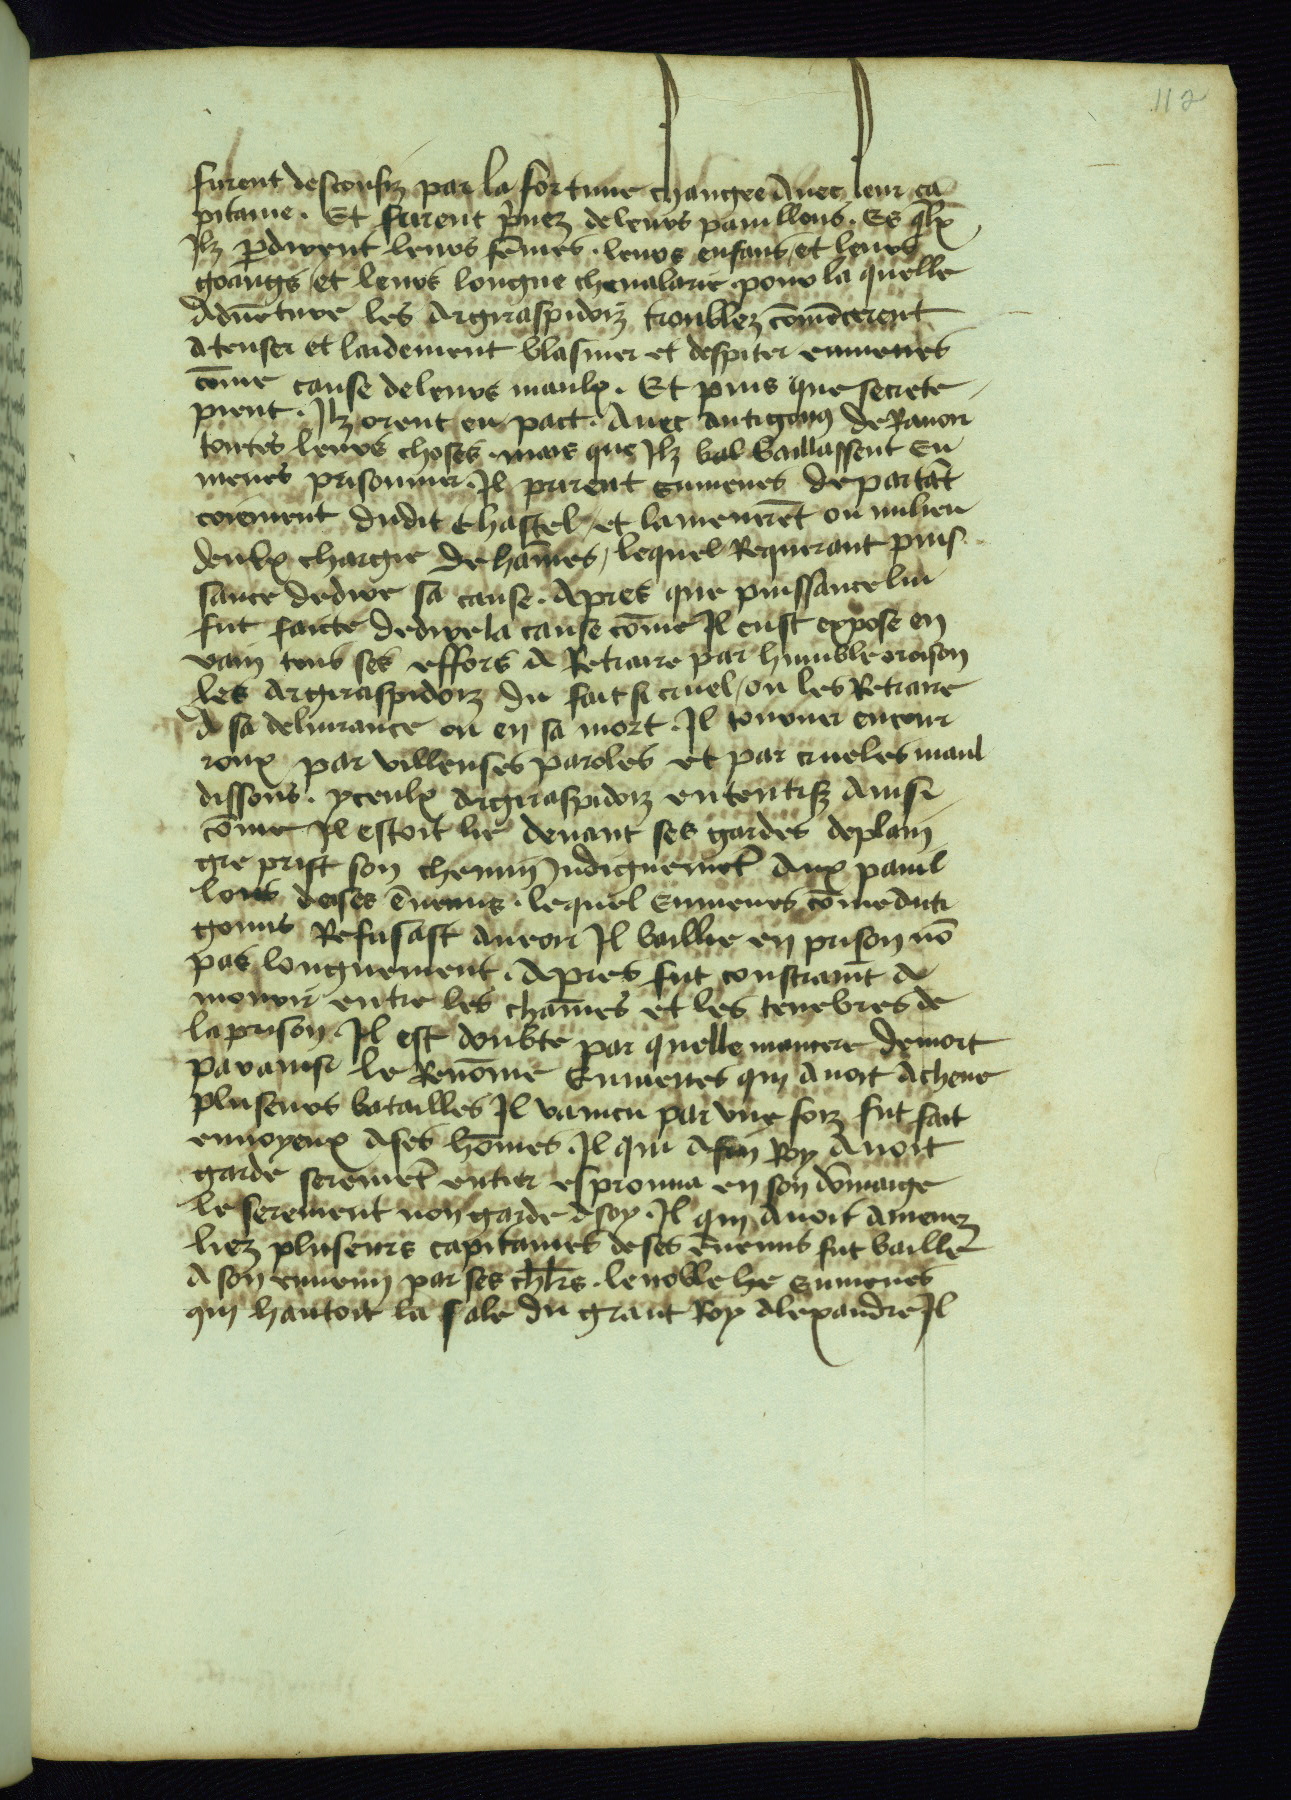 112
furent desconfiz par la fortune changee Avec leur ca
pitaine . Et furent p̃uez de leurs pauillons . Es q̃lx
Ilz p̱dirent leurs fẽmes . leurs enfans et leurs
goaings et leurs longue cheualarie pour la quelle
Aduẽture les Argiraspidoiz troublez cõmẽcerent
a tenser et laidement blasmer et despiter eumenes
cõme cause de leurs maulx . Et puis que secrete
ment . Ilz orent eu pact . Avec antigonus de Rauoir
toutes leurs choses mais que Ilz bal baillassent Eu
menes prisonnier . Il prirent eumenes departãt
coiement dudit Chastel et lamenerẽt ou milieu
deulx chargie de chaines / lequel Requerant puis
sance de dire sa cause . Apres que puissance lui
fut faicte de dire la cause cõme Il eust expose en
vain tous ses effors A Retraire par humble oroison
les Argiraspidoiz du fait si cruel / ou les Retraire
A sa deliurance ou en sa mort . Il tourner en cour
roux par villenses paroles et par crueles maul
dissons . yceulx Argiraspidoiz ententifz Ainsi
cõme Il estoit lie deuant ses gardes de plain
gre prist son chemin Indignemẽt Aux pauil
lons de ses ẽnemis . lequel Eumenes cõme Anti
gonus Refusast A veoir Il baillie en prison nõ
pas longuement . Apres fut constraint de
mourir entre les chaines et les tenebres de
la prison . Il est doubte par quelle maniere de mort
par ainsi le Renõme Eumenes qui Auoit Acheue
pluseurs batailles Il vaincu par vne foiz fut fait
ennoyeux A ses hõmes . Il qui A son Roy Auoit
garde seremẽt entier esprouua en son dõmaige
le serement non garde A soy . Il qui Auoit Amenez
liez pluseurs capitaines de ses ẽnemis fut baille
A son ennemi par ses ch̃lrs . le noble hẽ Eumenes
qui hantoit la sale du grant Roy Alexandre Il